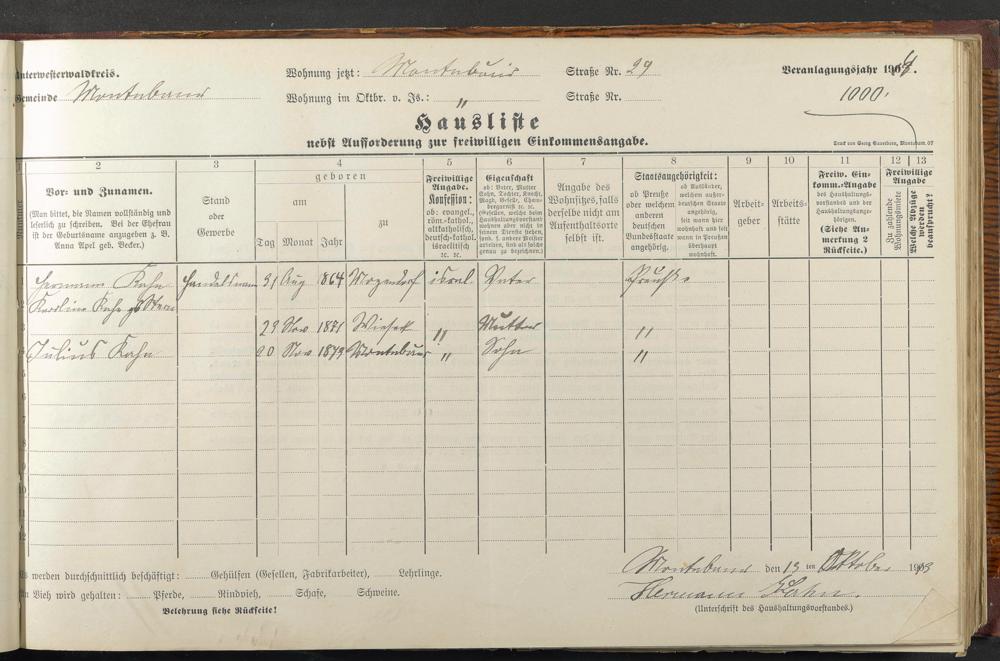 Unterwesterwaldkreis.
Wohnung jetzt: Montabaur
Straße Nr. 29
Veranlagungsjahr 1914.
Gemeinde Montabaur
Wohnung im Oktbr. v. Js.: "
Straße Nr.
1000.
Hausliste
nebst Aufforderung zur freiwilligen Einkommensangabe.
Druck von Georg Sauerborn, Montabaur. 07
2 3 4 5 6 7 8 9 10 11 12 13
Nummer
Vor- und Zunamen.
(Man bittet, die Namen vollständig und
leserlich zu schreiben. Bei der Ehefrau
ist der Geburtsname anzugeben z. B.
Anna Apel geb. Becker.)
Stand
oder
Gewerbe
geboren
am
zu
Tag Monat Jahr
Freiwillige
Angabe.
Konfession:
ob: evangel.,
röm.-kathol.,
altkatholisch,
deutsch-kathol.
israelitisch
rc. rc.
Eigenschaft
ob: Vater, Mutter
Sohn, Tochter, Knecht,
Magd, Geselle, Cham-
bregarnist rc. rc.
(Gesellen, welche beim
Haushaltungsvorstand
wohnen aber nicht in
seinem Dienste stehen,
sond. f. andere Meister
arbeiten, sind als solche
genau zu bezeichnen.)
Angabe des
Wohnsitzes, falls
derselbe nicht am
Aufenthaltsorte
selbst ist.
Staatsangehörigkeit:
ob Preuße
oder welchem
anderen
deutschen
Bundesstaate
angehörig.
ob Ausländer,
welchem außer-
deutschen Staate
angehörig,
seit wann hier
wohnhaft und seit
wann in Preußen
überhaupt
wohnhaft.
Arbeit-
geber
Arbeits-
stätte
Freiw. Ein-
komm.-Angabe
des Haushaltungs-
vorstandes und der
Haushaltungsange-
hörigen.
(Siehe An-
merkung 2
Rückseite.)
Freiwillige
Angabe
Zu zahlende
Wohnungsmiete
Welche Abzüge
werden
beansprucht?
Hermann Kahn Handelsmann 31 Aug 1864 Mogendorf israel. Vater Preuße
Karoline Kahn gb Stern
23 Nov 1871 Wieseck " Mutter "
Julius Kahn 20 Nov Montabaur " Sohn "
Es werden durchschnittlich beschäftigt: Gehülfen (Gesellen, Fabrikarbeiter), Lehrlinge.
An Vieh wird gehalten: Pferde, Rindvieh, Schafe, Schweine.
Belehrung siehe Rückseite!
Montabaur den 13 ten Oktober 1913
Hermann Kahn.
(Unterschrift des Haushaltungsvorstandes.)